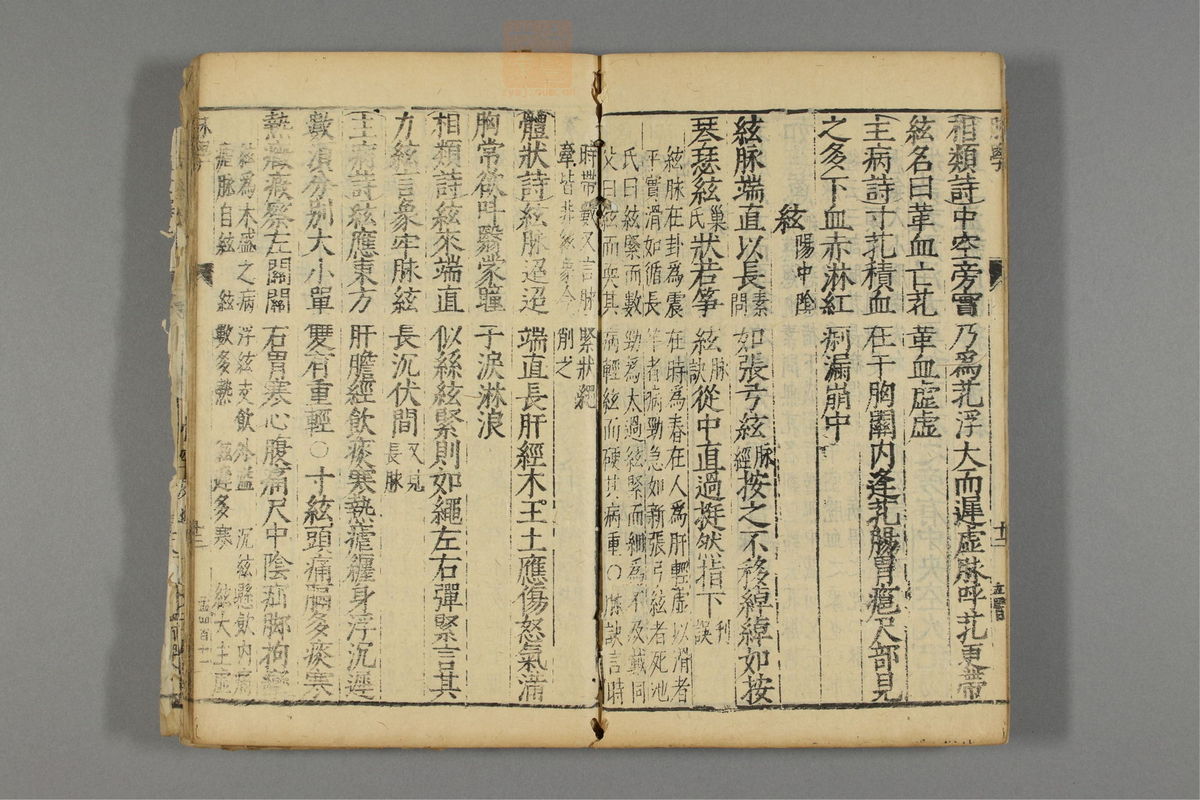 相類詩中空旁實乃爲芤浮大而遲虛脉呼芤更帶
絃名曰革血亡芤革血虛虛
主病詩寸芤積血在于胸關內逢芤腸胃癰尺部見
之多下血赤淋紅痢漏崩中
絃 陽中陰
絃脉端直以長素問如張弓絃脉經按之不移綽綽如按
琴瑟絃巢氏狀若箏絃脉訣從中直過挺然指下刊誤
絃脉在卦爲震在時爲春在人爲肝輕虛以滑者
平實滑如循長竿者病勁急如新張弓絃者死池
氏曰絃緊而數勁爲太過絃緊而細爲不及戴同
父曰絃而耎其病輕絃而硬其病重○訣言時
時帶數又言脉緊狀繩
牽皆非絃象今削之
體狀詩絃脉迢迢端直長肝經木王土應傷怒氣滿
胸常欲呌翳蒙瞳子淚淋浪
相類詩絃來端直似絲絃緊則如繩左右彈緊言其
力絃言象牢脉絃長沉伏間又見長脉
主病詩絃應東方肝膽經飲痰寒熱瘧纏身浮沉遲
數須分別大小單雙有重輕○寸絃頭痛膈多痰寒
熱癥瘕察左關關右胃寒心腹痛尺中陰疝脚拘攣
絃爲木盛之病浮絃支飲外溢沉絃懸飲內痛
瘧脉自絃絃數多熱絃遲多寒絃大主虛